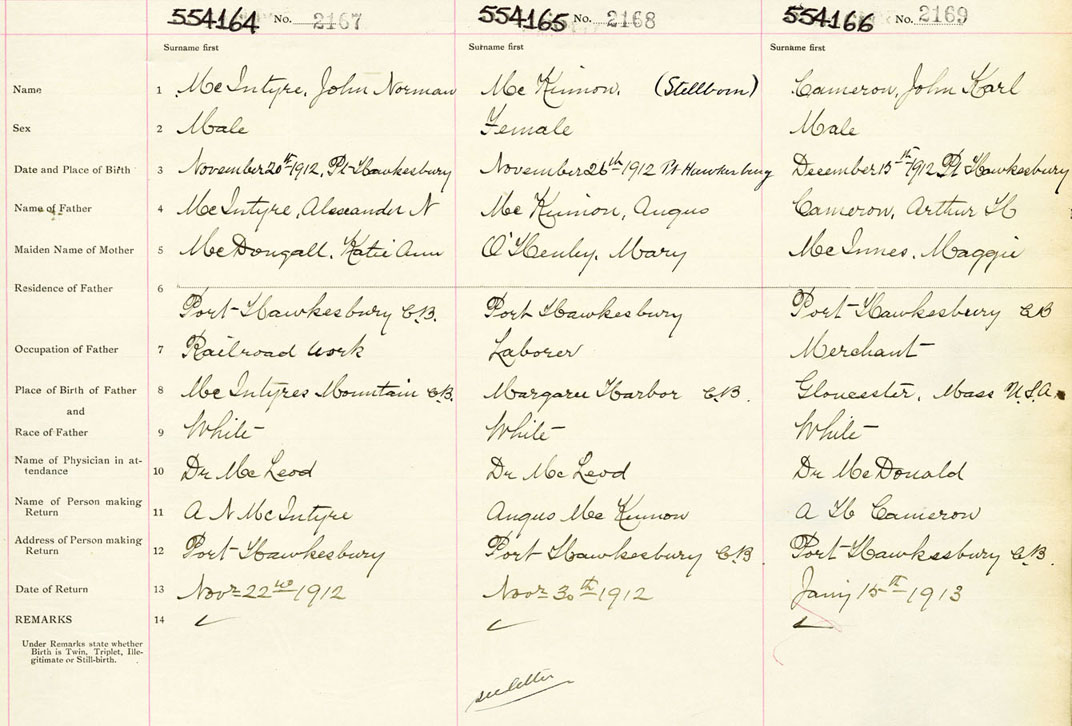 554164 No. 2167 554165 No. 2168 554166 No. 2169
Surname first Surname first Surname first
Name 1 McIntyre, John Norman McKinnon. (Stillborn) Cameron, John Karl
Sex 2 Male Female Male
Date and Place of Birth 3 November 20th 1912, Pt Hawkesbury November 26th 1912 Pt Hawkesbury December 15th 1912 Pt Hawkesbury
Name of Father 4 McIntyre, Alexander N McKinnon, Angus Cameron, Arthur H
Maiden Name of Mother 5 McDougall, Katie Ann O'Henley, Mary McInnes, Maggie
Residence of Father 6
Port Hawkesbury C.B. Port Hawkesbury Port Hawkesbury CB
Occupation of Father 7 Railroad work Laborer Merchant
Place of Birth of Father 8 McIntyres Mountain C.B. Margaree Harbor C.B. Gloucester, Mass U.S.A.
and
Race of Father 9 White White White
Name of Physician in at-
tendance 10 Dr McLeod Dr McLeod Dr McDonald
Name of Person making
Return 11 A N McIntyre Angus McKinnon A H Cameron
Address of Person making
Return 12 Port Hawkesbury Port Hawkesbury C.B. Port Hawkesbury C.B.
Date of Return 13 Novr 22nd 1912 Novr 30th 1912 Jany 15th 1913
REMARKS 14
Under Remarks state whether
Birth is Twin, Triplet, Ille-
gitimate or Still-birth.
see letter